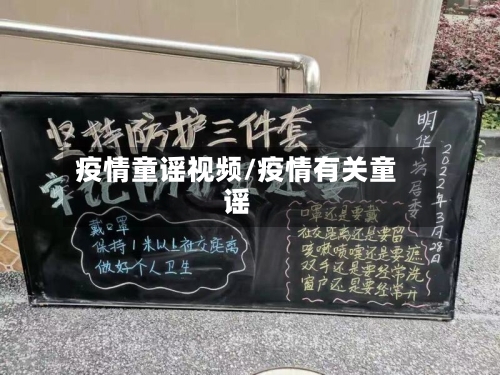 坚持防护三件套
牢记防护
疫情童谣视频/疫情有关童
谣
戴口罩
保持1米以上社交距离
做好个人卫生
口罩还是要戴
社交距离还是要留
咳嗽喷嚏还是要遮
双手还是要经常洗
窗户还是要经常开
明华坊居委
2022年3月29日